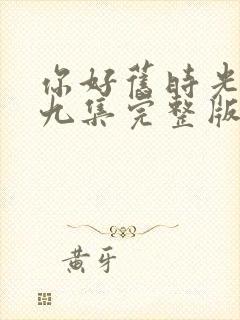 你好舊時光
九集完整版
黃牙